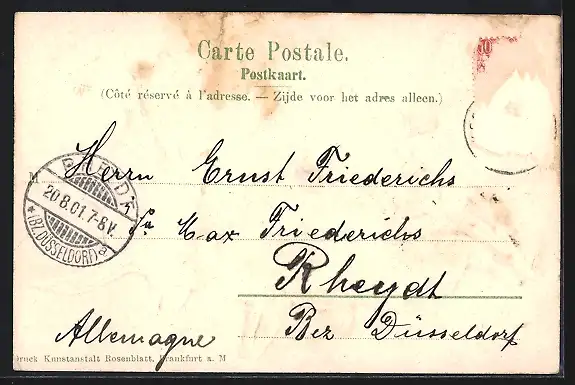 Carte Postale.
Postkaart.
(Côté réservé à l'adresse. — Zijde voor het adres alleen.)
10
M
Herrn Ernst Friederichs
20.8.01.7-8V.
*(BZ.DÜSSELDORF)a
Max Friederichs
Rheydt
Bez Düsseldorf
Allemagne
Druck Kunstanstalt Rosenblatt, Frankfurt a. M